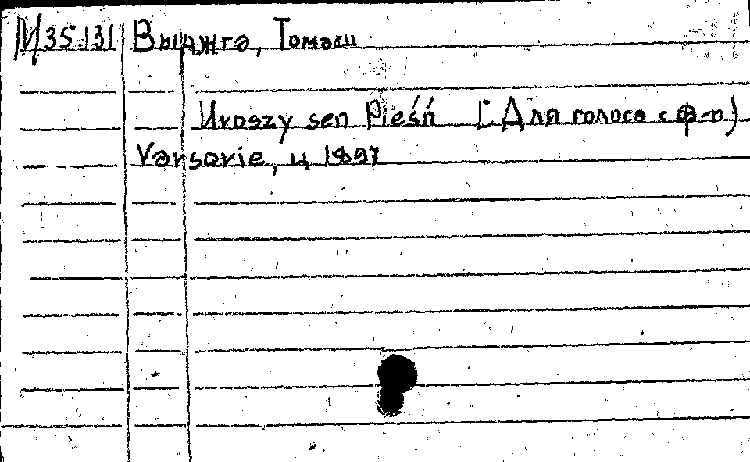 М 35131 Выджга, Томаш
Uroszy sen Pieśń [Для голоса с ф-п)
Varsovie, ц 1897